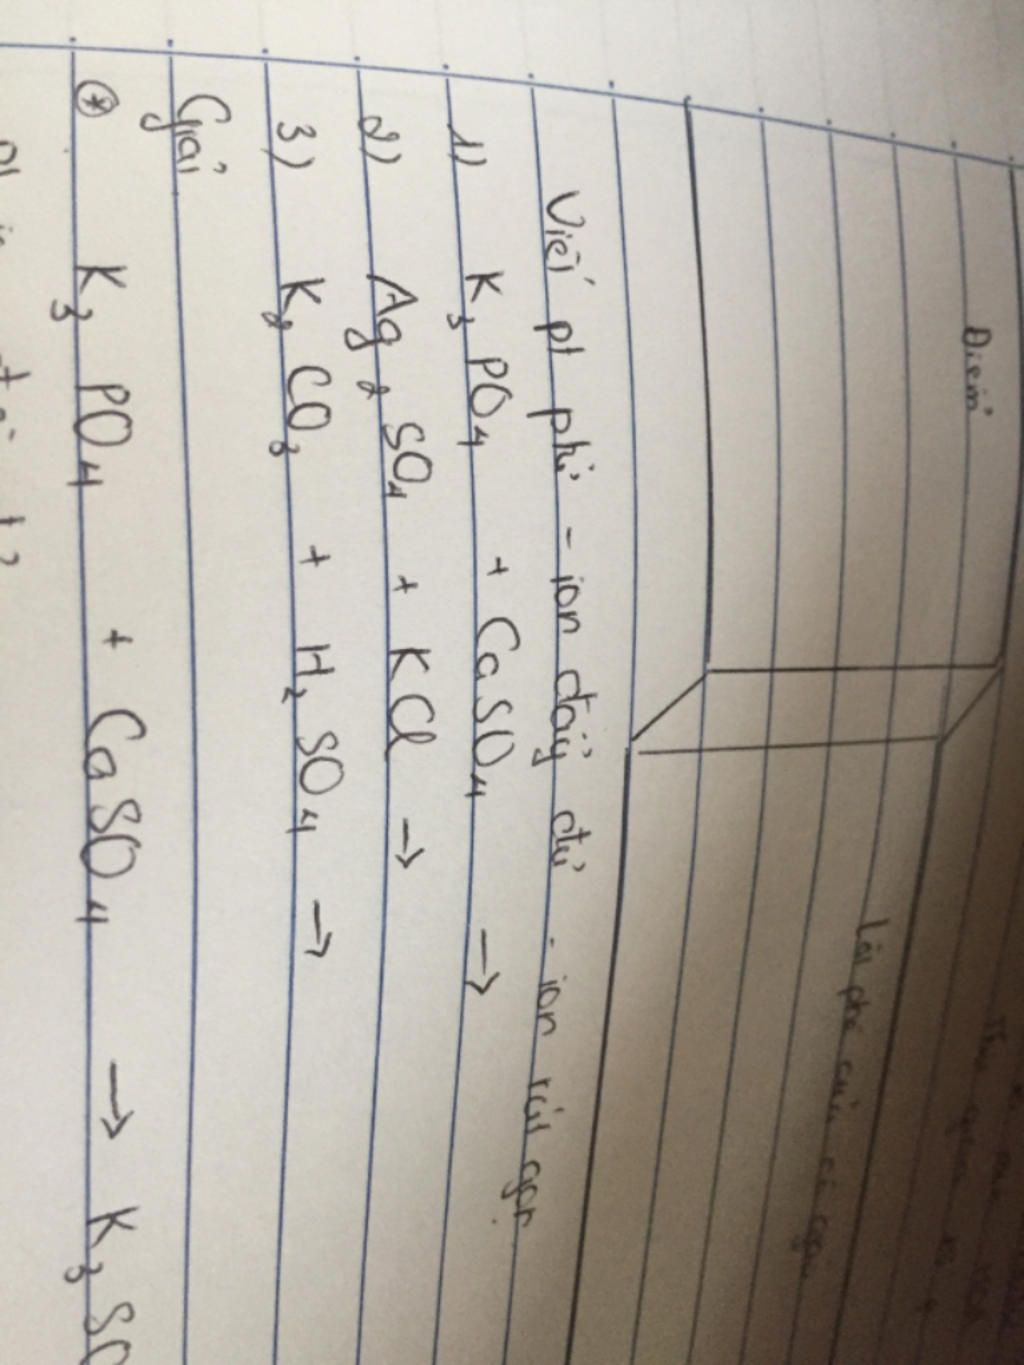 Điểm
Lời phê của cô giáo
Viết pt phử - ion đầy đủ - ion rút gọn
1) K₃PO₄ + CaSO₄ →
2) Ag₂SO₄ + KCl →
3) K₂CO₃ + H₂SO₄ →
Giải
* K₃PO₄ + CaSO₄ → K₃SO